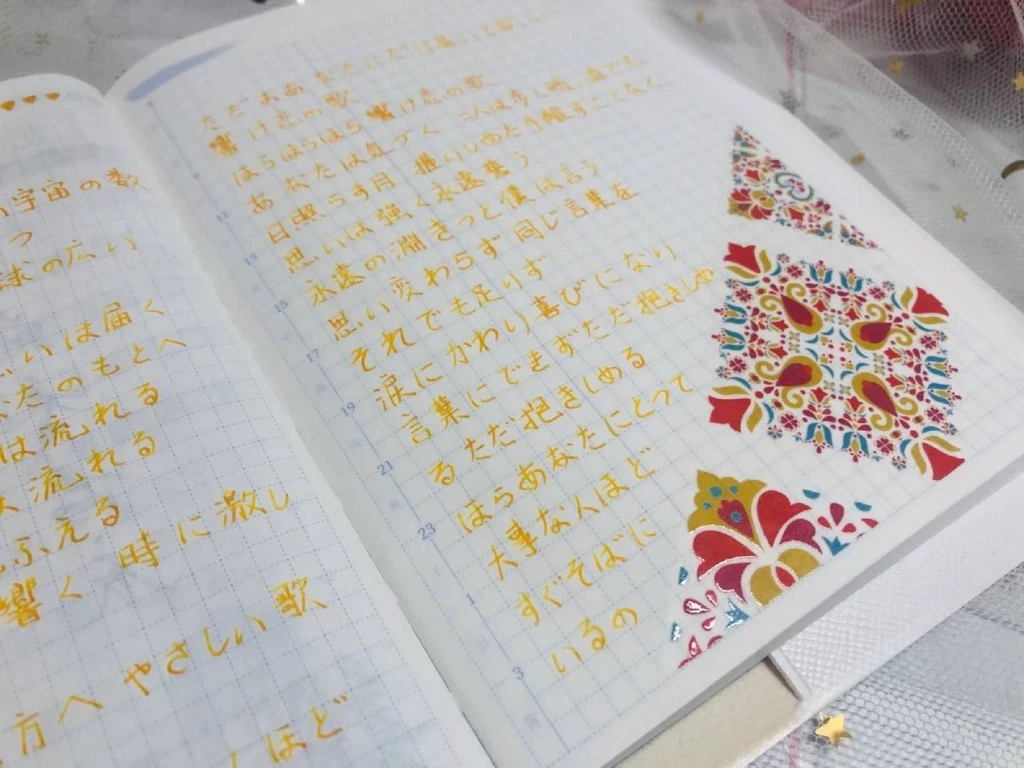 宇宙の数
つ
球の広い
いは届く
たのもとへ
は流れる
流れる
ふえる
響く 時に激し
方へ やさしい 歌
ほど
ただああなたにだけ届いて
響け恋の歌
ほらほらほら 響け恋の歌
あなたは気づく 二人は歩く暗い道でも
日照らす月 握りしめた手離すことなく
思いは強く永遠誓う
永遠の淵きっと僕は言う
思い変わらず同じ言葉を
それでも足りず
涙にかわり喜びになり
言葉にできずただ抱きしめ
るただ抱きしめる
ほらあなたにとって
大事な人ほど
すぐそばに
いるの
11
13
15
17
19
21
23
1
3